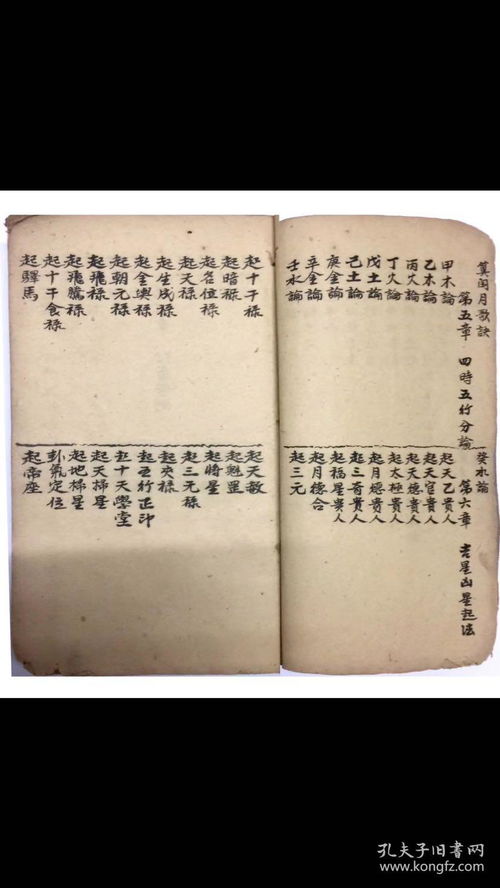 筭閏月歌訣
第五章 四時五行分論
甲木論
乙木論
丙火論
丁火論
戊土論
己土論
庚金論
辛金論
壬水論
癸水論
第六章 吉星凶星起法
起天乙貴人
起天官貴人
起天德貴人
起太極貴人
起月德貴人
起三奇貴人
起福星貴人
起月德合
起三元
起十干祿
起暗祿
起名位祿
起天祿
起生成祿
起金輿祿
起朝元祿
起飛祿
起飛騰祿
起十干食祿
起驛馬
起天赦
起魁罡
起將星
起三元祿
起夾祿
起五行正印
起十天學堂
起天掃星
起地掃星
卦氣定位
起帝座
孔夫子旧书网
www.kongfz.com